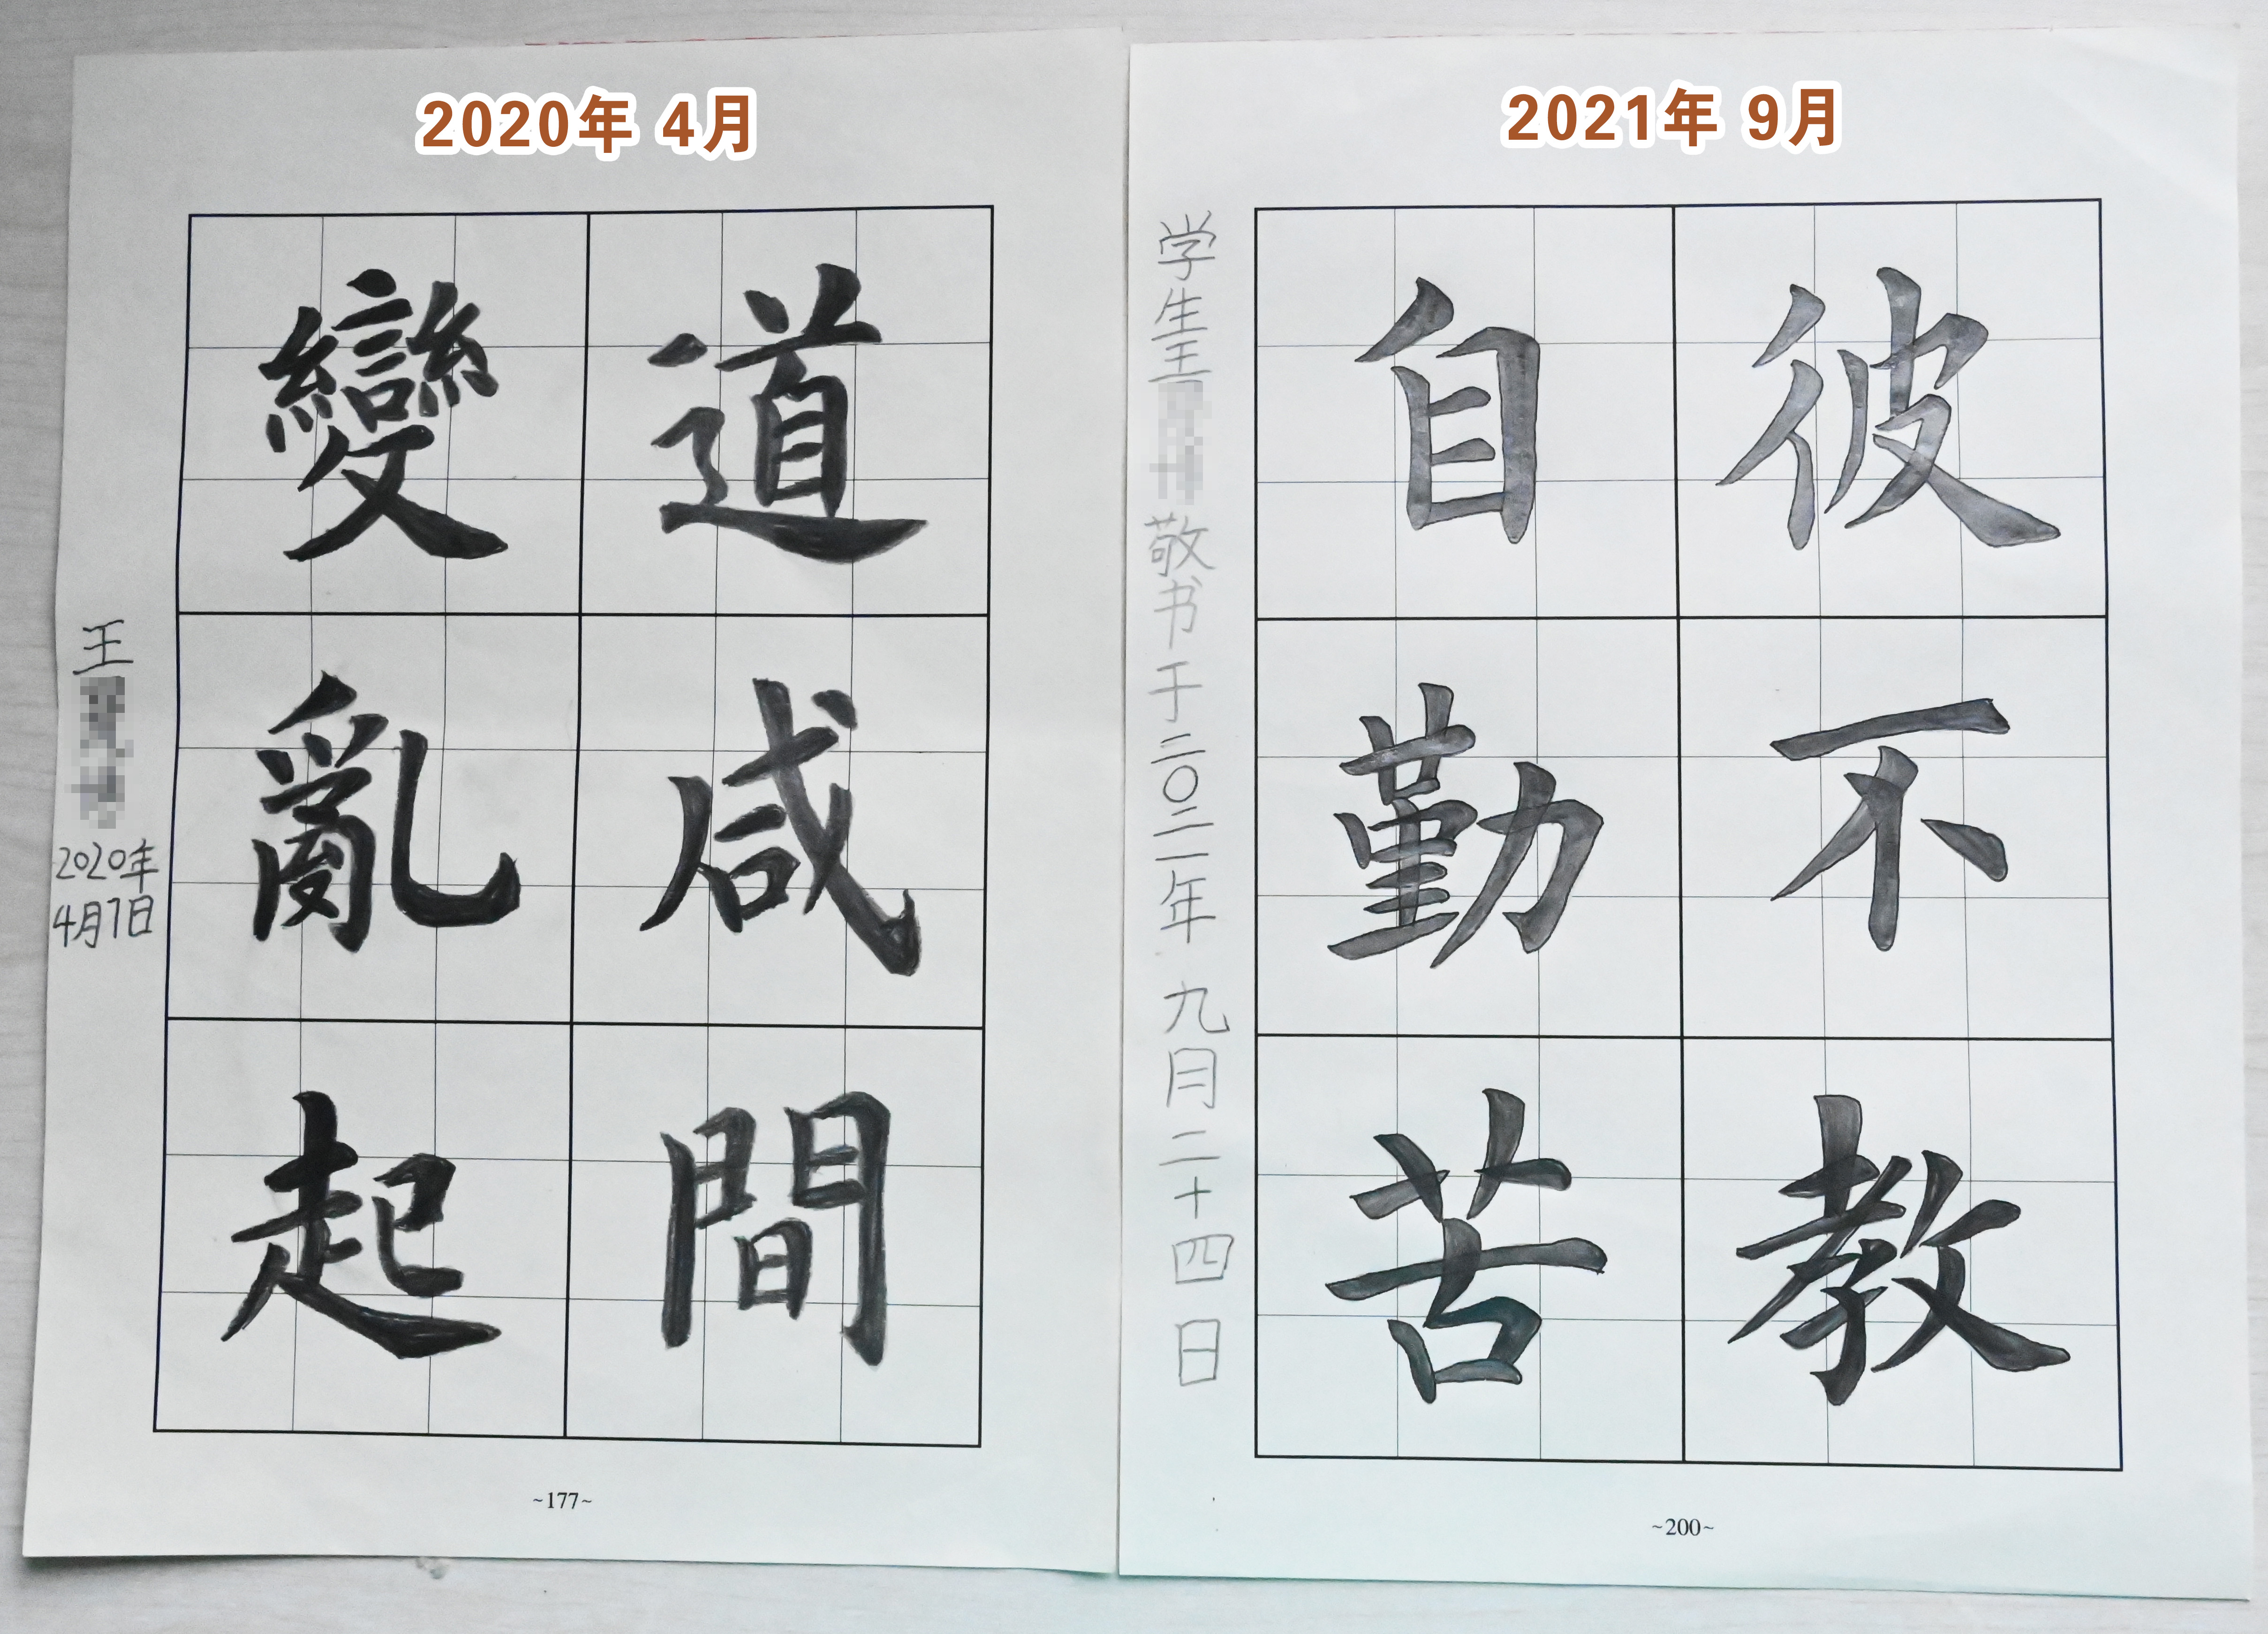 2020年 4月
道咸間
變亂起
王
2020年
4月7日
~177~
2021年 9月
彼不教
自勤苦
学生王
敬书于二〇二一年九月二十四日
~200~